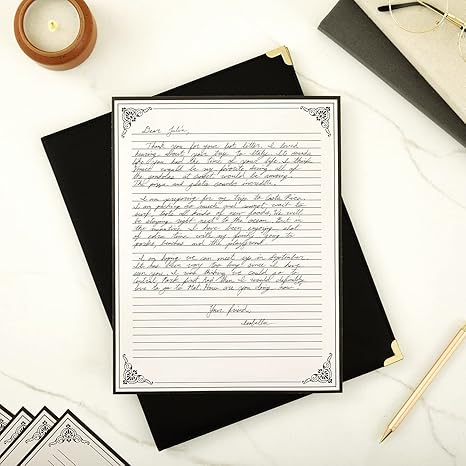 Dear Julia,
Thank you for your last letter. I loved
hearing about your trip to Italy. It sounds
like you had the time of your life. I think
Venice might be my favorite. Seeing all of
the gondolas at sunset would be amazing.
The pizza and gelato sounds incredible.
I am preparing for my trip to Costa Rica.
I am packing so much and cannot wait to
surf, taste all kinds of new foods. We will
be staying right next to the ocean. But in
the meantime I have been enjoying a lot
of extra time with my family going to
parks, beaches and the playground.
I am hoping we can meet up in September.
It has been way too long since I have
seen you. I was thinking we could go to
Central Park first and then I would definitely
love to go to Met. How are you doing now?
Your friend,
Isabella